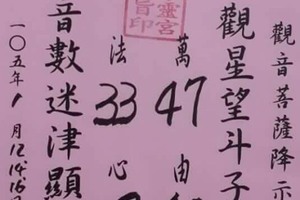 觀音菩薩降示
觀星望斗子
萬由
47
法心
33
音數迷津顯
一〇五年1月12.14.16日
靈宮
旨印